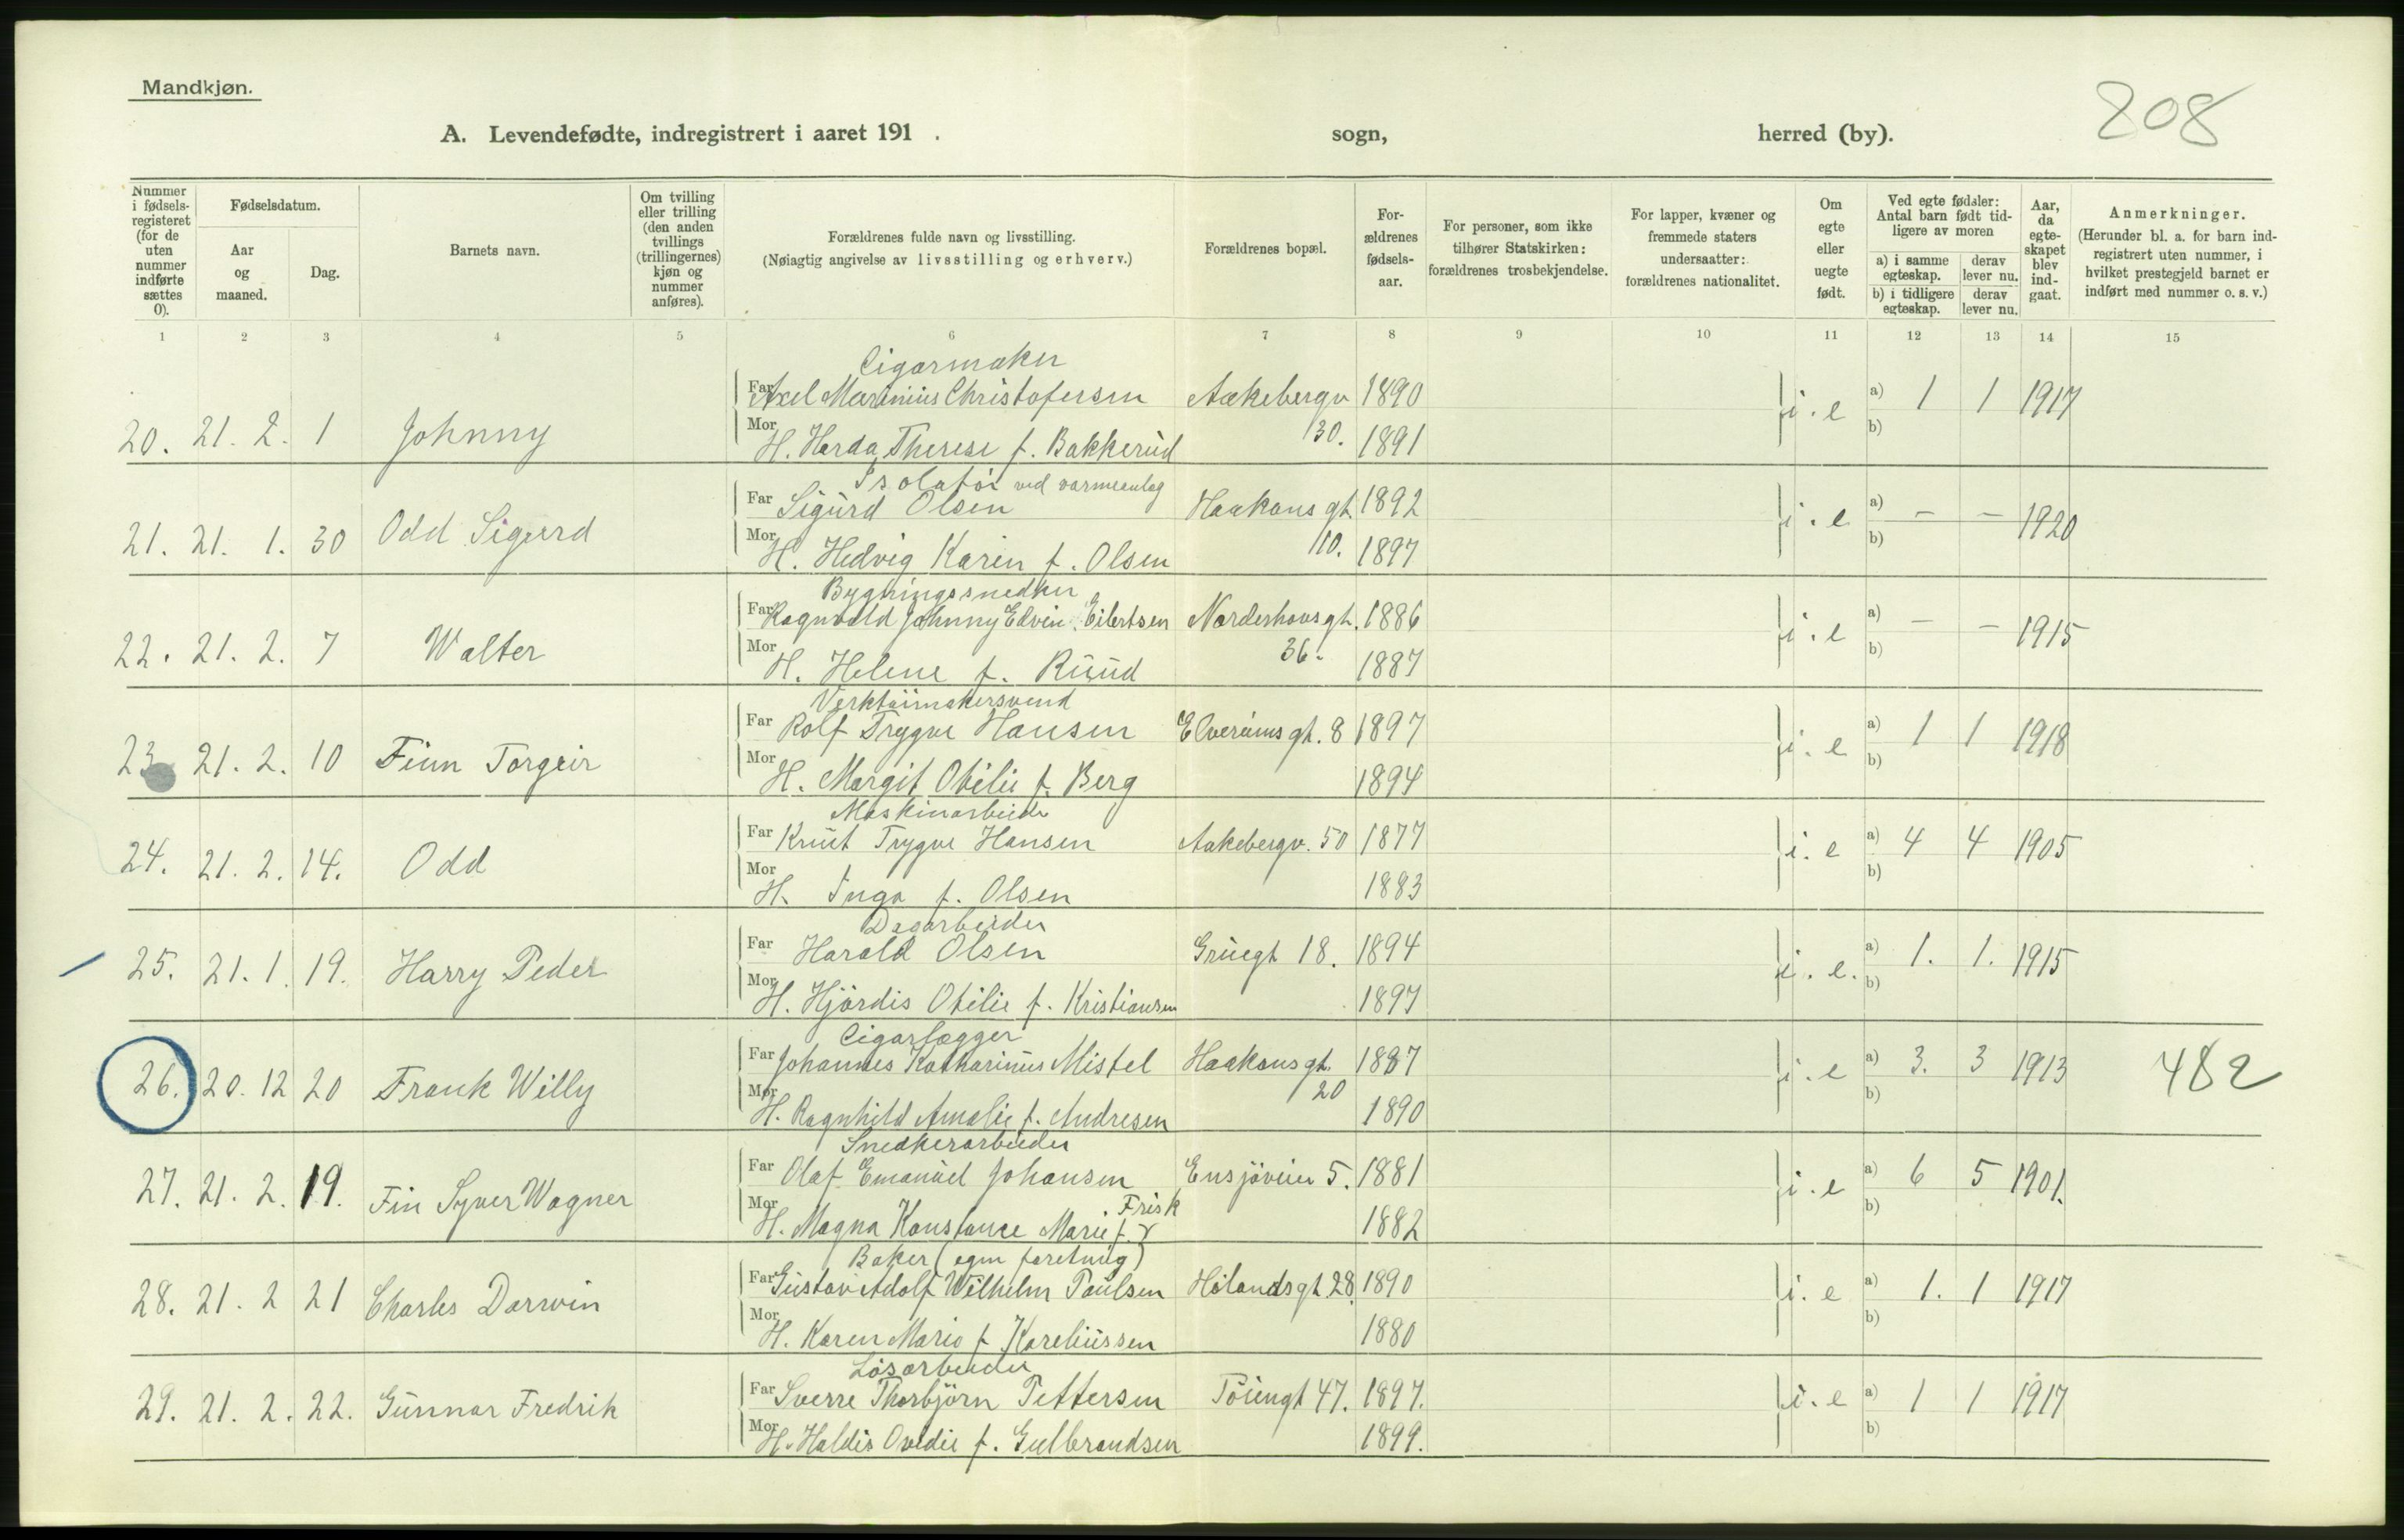 Mandkjøn.
208
A. Levendefødte, indregistrert i aaret 191 . sogn, herred (by).
Nummer i fødselsregisteret (for de uten nummer indførte sættes 0).
Fødselsdatum.
Aar og maaned.
Dag.
Barnets navn.
Om tvilling eller trilling (den anden tvillings (trillingernes) kjøn og nummer anføres).
Forældrenes fulde navn og livsstilling.
(Nøiagtig angivelse av livsstilling og erhverv.)
Forældrenes bopæl.
Forældrenes fødselsaar.
For personer, som ikke tilhører Statskirken: forældrenes trosbekjendelse.
For lapper, kvæner og fremmede staters undersaatter: forældrenes nationalitet.
Om egte eller uegte født.
Ved egte fødsler: Antal barn født tidligere av moren
a) i samme egteskap. derav lever nu.
b) i tidligere egteskap. derav lever nu.
Aar, da egteskapet blev indgaat.
Anmerkninger.
(Herunder bl. a. for barn indregistrert uten nummer, i hvilket prestegjeld barnet er indført med nummer o. s. v.)
1 2 3 4 5 6 7 8 9 10 11 12 13 14 15
Cigarmaker
Far Axel Marinius Christofersen Aakebergv 1890
20. 21. 2. 1 Johnny i. e a) 1 1 1917 b)
Mor H. Harda Therese f. Bakkerud 130. 1891
Isolatør ved varmeanlag
Far Sigurd Olsen Haakons gt. 1892
21. 21. 1. 30 Odd Sigurd i. e a) – – 1920 b)
Mor H. Hedvig Karin f. Olsen 10. 1897
Bygningssnedker
Far Ragnvald Johnny Edvin Eilertsen Norderhovsgt. 1886
22. 21. 2. 7 Walter i. e a) – – 1915 b)
Mor H. Helene f. Ruud 36. 1887
Verktøimakersvend
Far Rolf Trygve Hansen Elverums gt. 8 1897
23 21. 2. 10 Finn Torgeir i. e a) 1 1 1918 b)
Mor H. Margit Otilie f. Berg 1894
Maskinarbeider
Far Knut Trygve Hansen Aakebergv. 50 1877
24. 21. 2. 14. Odd i. e a) 4 4 1905 b)
Mor H. Inga f. Olsen 1883
Dagarbeider
Far Harald Olsen Gruegt 18. 1894
25. 21. 1. 19. Harry Peder i. e. a) 1. 1. 1915 b)
Mor H. Hjørdis Otilie f. Kristiansen 1897
Cigarlægger
Far Johannes Katharinus Mistel Haakonsgt. 1887
26. 20. 12 20 Frank Willy i. e a) 3. 3 1913 b) 482
Mor H. Ragnhild Amalie f. Andresen 20 1890
Snedkerarbeider
Far Olaf Emanuel Johansen Ensjøveien 5. 1881
27. 21. 2. 19. Fin Syver Wagner i. e a) 6 5 1901. b)
Mor H. Magna Konstance Marie f. Frisk 1882
Baker (egen foretning)
Far Gustav Adolf Wilhelm Paulsen Hølandsgt. 28. 1890
28. 21. 2 21 Charles Darwin i. e a) 1. 1 1917 b)
Mor H. Karen Marie f Kareliussen 1880
Løsarbeider
Far Sverre Thorbjørn Pettersen Tøiengt 47. 1897.
29. 21. 2. 22. Gunnar Fredrik i. e a) 1 1 1917 b)
Mor H. Haldis Ovedie f. Gulbrandsen 1899.